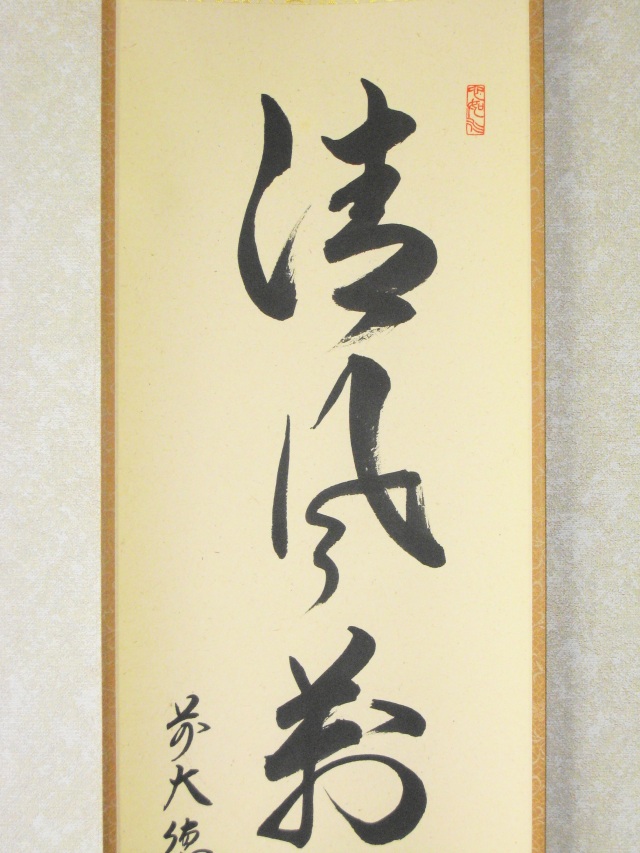 清風萬
前大德